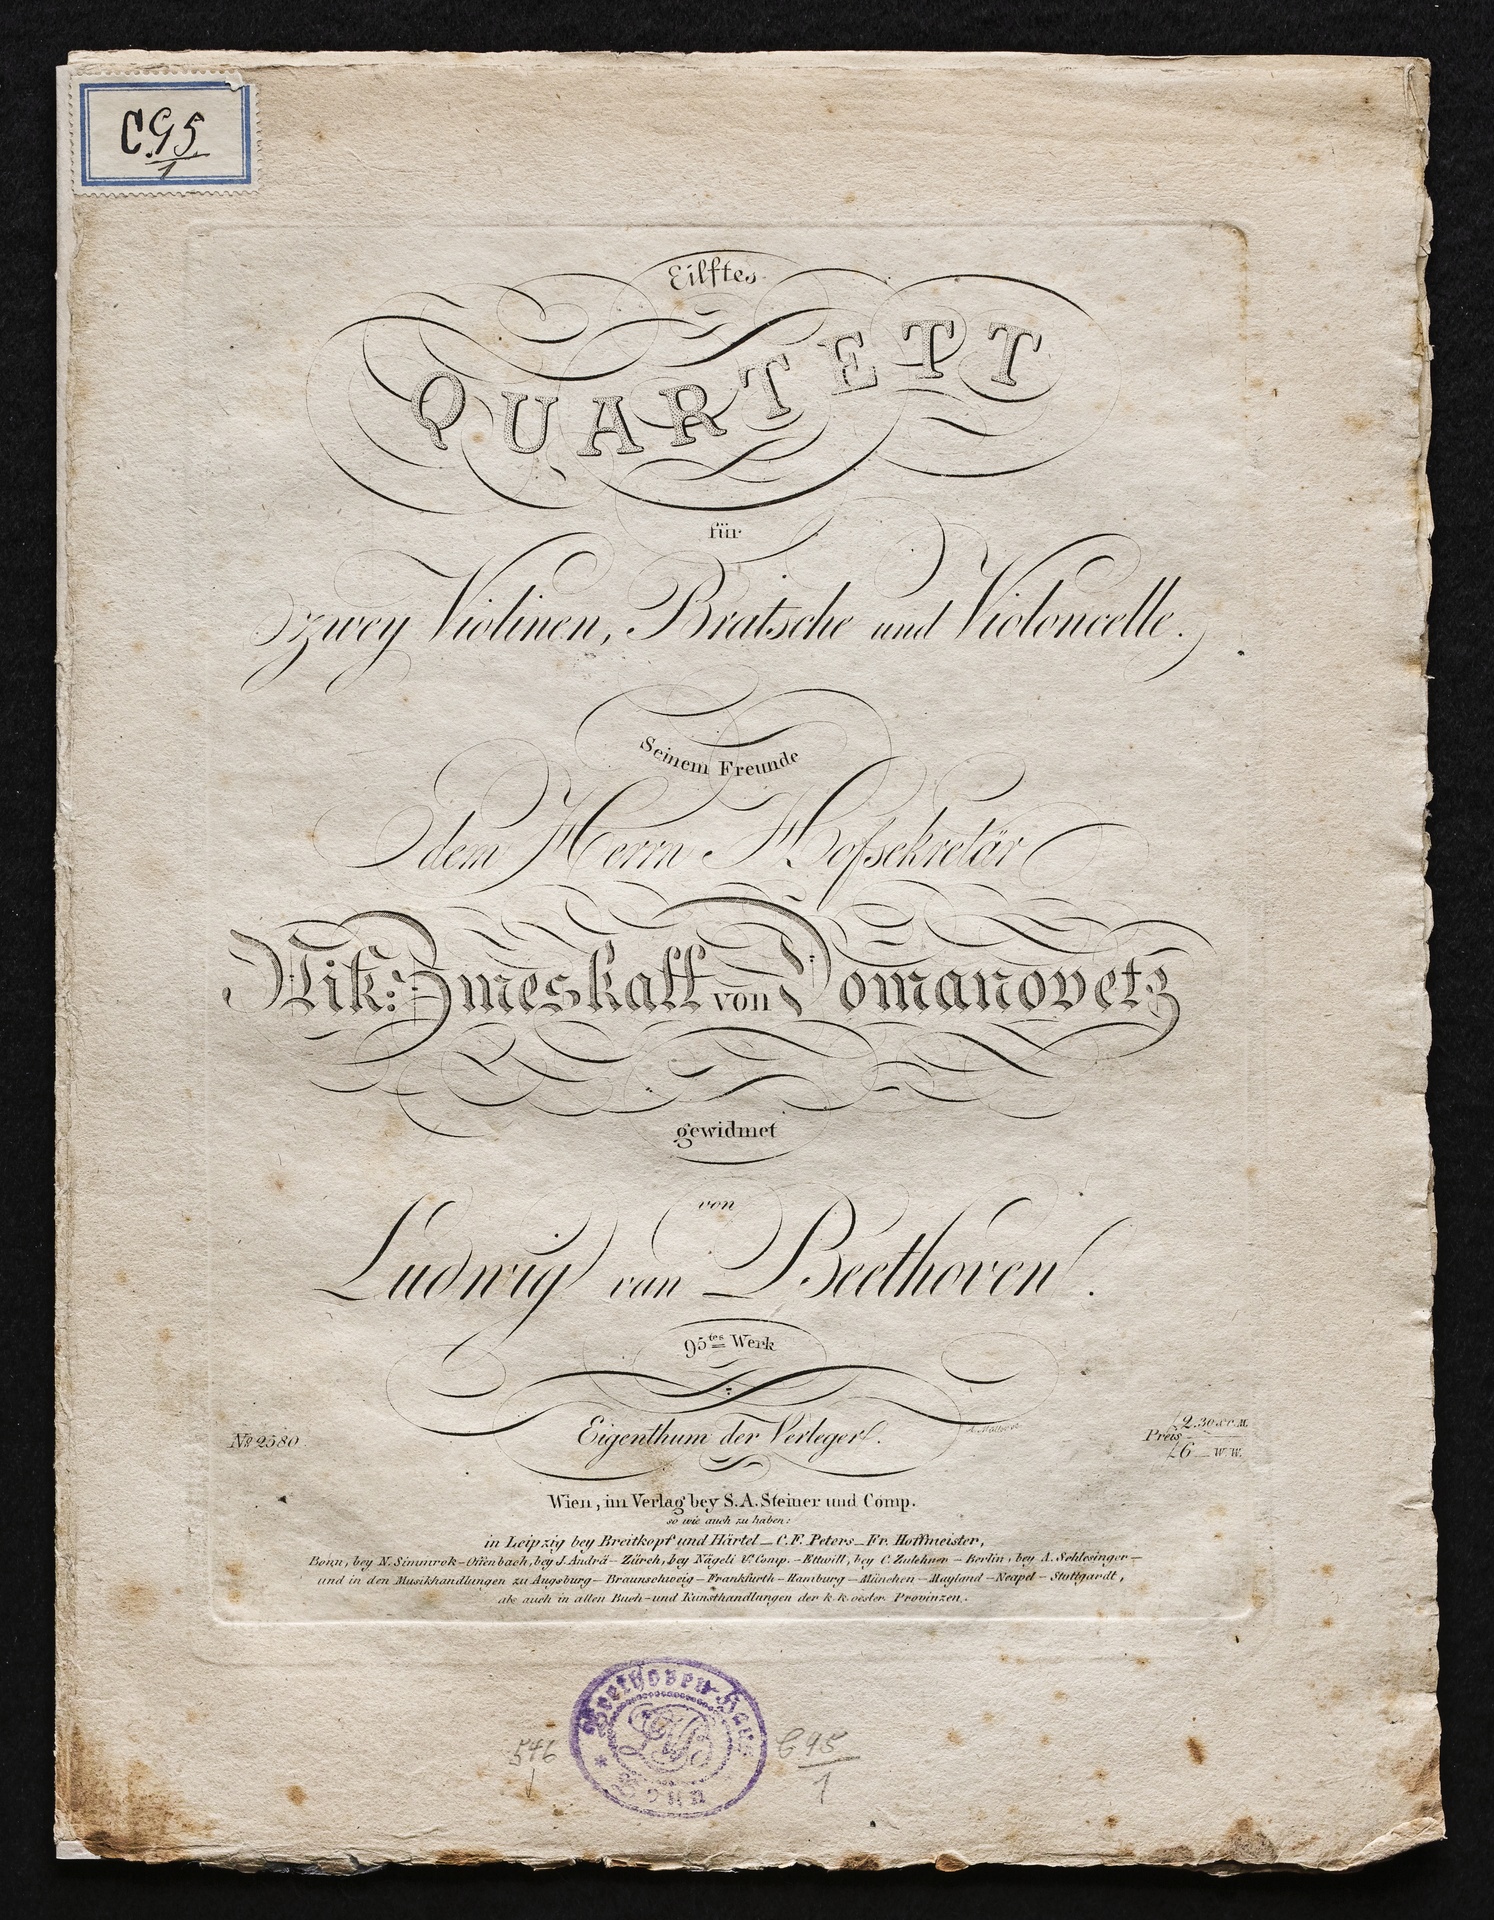 C.95
1
Eilftes
QUARTETT
für
zwey Violinen, Bratsche und Violoncelle.
Seinem Freunde
dem Herrn Hofsekretär
Nik: Zmeskall von Domanovetz
gewidmet
von
Ludwig van Beethoven.
95tes Werk
Eigenthum der Verleger.
No 2580.
Preis f 2.30 x C.M.
f 6 _ W.W.
Wien, im Verlag bey S.A. Steiner und Comp.
so wie auch zu haben:
in Leipzig bey Breitkopf und Härtel _ C.F. Peters _ Fr. Hoffmeister,
Bonn, bey N. Simmrok – Offenbach, bey J. André – Zürch, bey Nägeli u. Comp. – Ettwill, bey C. Zulehner – Berlin, bey A. Schlesinger –
und in den Musikhandlungen zu Augsburg – Braunschweig – Frankfurth – Hamburg – München – Mayland – Neapel – Stuttgardt,
als auch in allen Buch- und Kunsthandlungen der k.k. oester. Provinzen.
Beethoven-Haus
Bonn
546
C 95
1